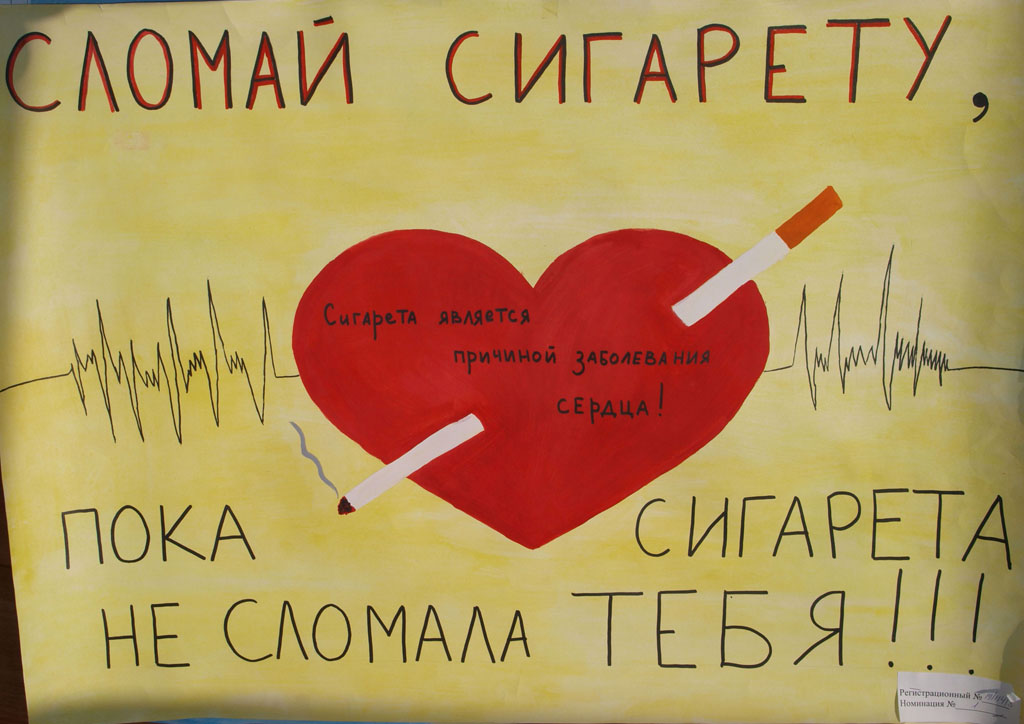 СЛОМАЙ СИГАРЕТУ,
Сигарета является
причиной заболевания
сердца!
ПОКА СИГАРЕТА
НЕ СЛОМАЛА ТЕБЯ!!!
Регистрационный №
Номинация №